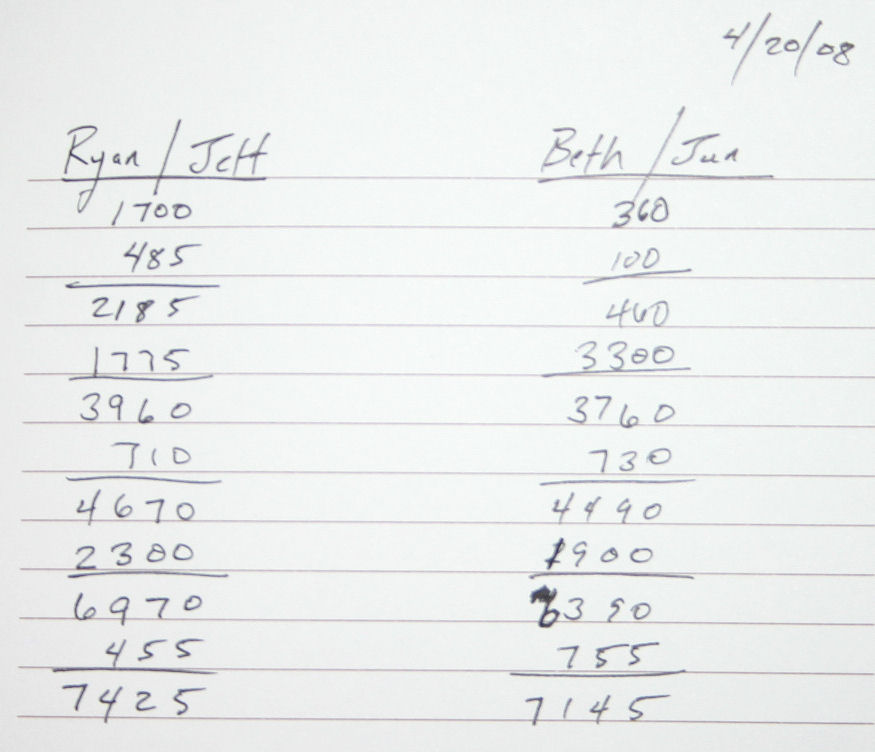 4/20/08
Ryan / Jeff Beth / Jun
1700 360
485 100
2185 460
1775 3300
3960 3760
710 730
4670 4490
2300 1900
6970 6390
455 755
7425 7145